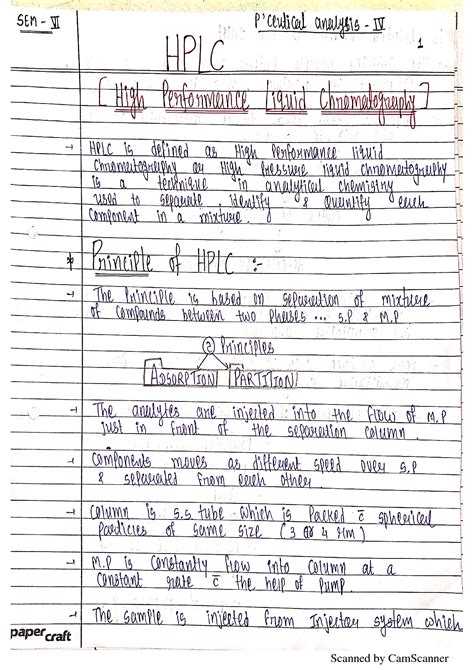 SEM - VI
P'ceutical analysis - IV
1
HPLC
[ High Performance Liquid Chromatography ]
→ HPLC is defined as High Performance liquid
Chromatography or High Pressure liquid chromatography
is a technique in analytical chemistry
used to separate, identify & Quantify each
Component in a mixture.
* Principle of HPLC :-
→ The Principle is based on separation of mixture
of Compounds between two Phases ... S.P & M.P
② Principles
ADSORPTION PARTITION
→ The analytes are injected into the flow of M.P
just in front of the separation column.
→ Components moves as different speed over S.P
& separated from each other
→ Column is s.s. tube which is Packed c̄ spherical
Particles of same size ( 3 or 4 μm )
→ M.P is Constantly flow into Column at a
Constant rate c̄ the help of Pump.
→ The sample is injected from Injector system which
papercraft
Scanned by CamScanner